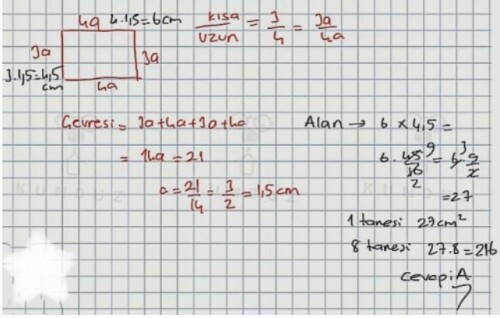 4a 4.1,5=6cm
3a
3a
3.1,5=4,5
cm
4a
kısa/uzun = 3/4 = 3a/4a
Çevresi = 3a+4a+3a+4a
= 14a = 21
a = 21/14 = 3/2 = 1,5 cm
Alan → 6 × 4,5 =
6 . 45/10 = 6 . 9/2
9
2
3
= 27
1 tanesi 27cm²
8 tanesi 27.8 = 216
Cevap: A